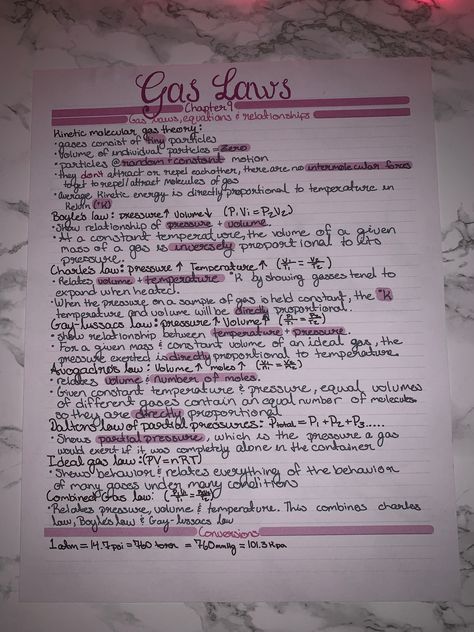 Gas Laws
Chapter 9
Gas laws, equations & relationships
Kinetic molecular gas theory:
• gases consist of tiny particles
• Volume of individual particles = zero
• particles @ random + constant motion
• they don't attract or repel eachother, there are no intermolecular forces
to get to repel/attract molecules of gas
• Average kinetic energy is directly proportional to temperature in
Kelvin (°K)
Boyles law: pressure ↑ volume ↓ (P₁V₁ = P₂V₂)
• Show relationship of pressure + volume.
• At a constant temperature, the volume of a given
mass of a gas is inversely proportional to its
pressure.
Charle's law: pressure ↑ Temperature ↑ (V₁/T₁ = V₂/T₂)
• Relates volume + temperature °K by showing gasses tend to
expand when heated.
• When the pressure on a sample of gas is held constant, the °K
temperature and volume will be directly proportional.
Gay-lussacs law: pressure ↑ Volume ↑ (P₁/T₁ = P₂/T₂)
• show relationship between temperature + pressure
• For a given mass & constant volume of an ideal gas, the
pressure exerted is directly proportional to temperature
law: Volume ↑ moles ↑
• relates volume & number of moles.
• Given constant temperature & pressure, equal volumes
of different gases contain an equal number of molecules
so they are directly proportional
Daltons law of partial pressures: Ptotal = P₁ + P₂ + P₃.....
• Shows partial pressure, which is the pressure a gas
would exert if it was completely alone in the container
Ideal gas law: (PV = nRT)
• Shows behavior & relates everything of the behavior
of many gases under many conditions
Combined gas law:
• Relates pressure, volume & temperature. This combines charles
law, Boyles law & Gay-lussacs law
Conversions
1 atm = 14.7 psi = 760 torr = 760 mmHg = 101.3 Kpa